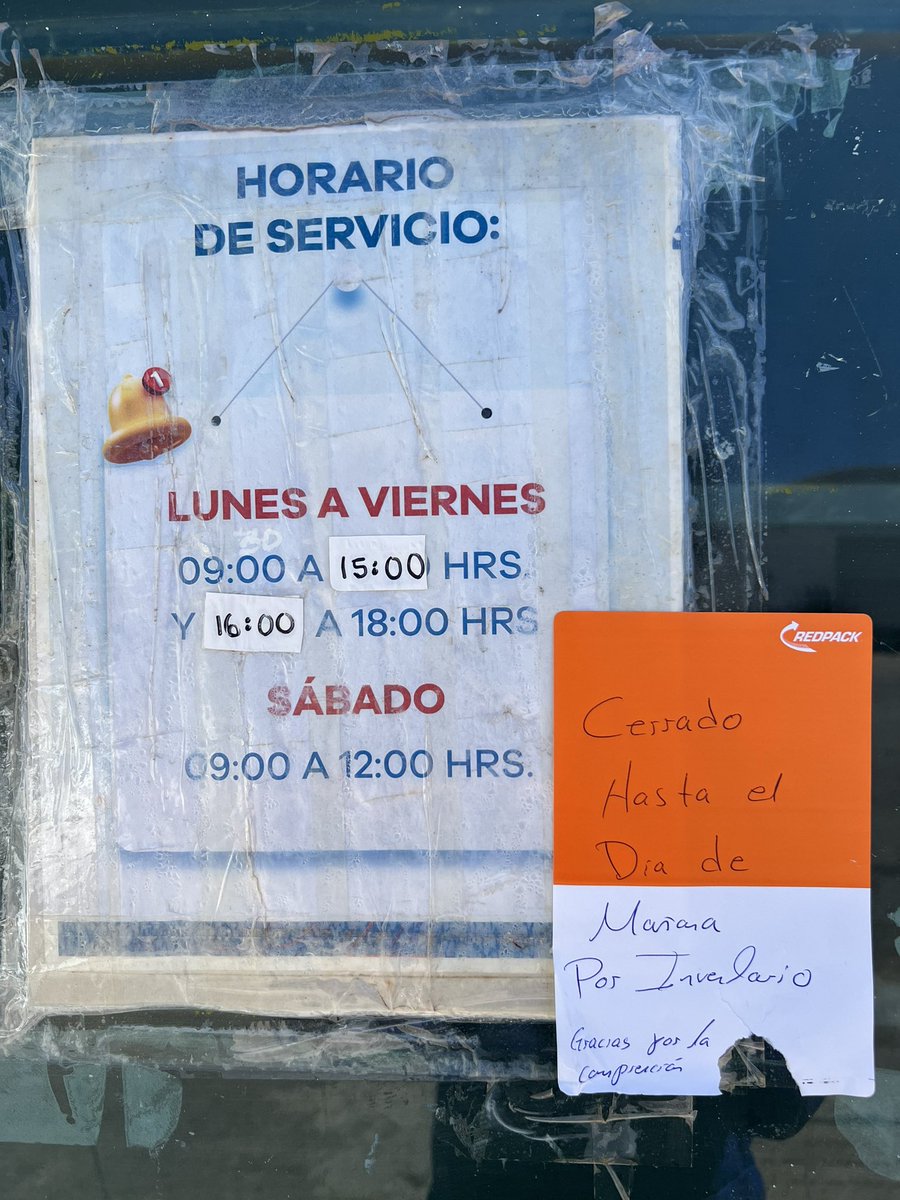 HORARIO
DE SERVICIO:
1
LUNES A VIERNES
30
09:00 A 15:00 HRS.
Y 16:00 A 18:00 HRS
SÁBADO
09:00 A 12:00 HRS.
REDPACK
Cerrado
Hasta el
Dia de
Mañana
Por Inventario
Gracias por la
comprención